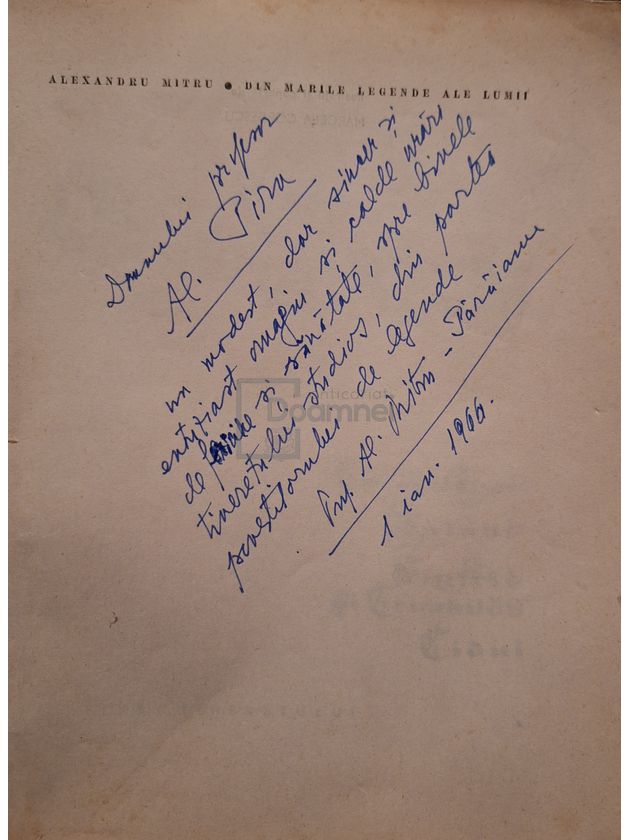 ALEXANDRU MITRU ● DIN MARILE LEGENDE ALE LUMII
Domnului profesor
Al. Piru
un modest, dar sincer și
entuziast omagiu și calde urări
de fericire și sănătate, spre binele
tineretului studios, din partea
povestitorului de legende
Prof. Al. Mitru - Pârâianu
1 ian. 1966.
anticariat
Doamnei